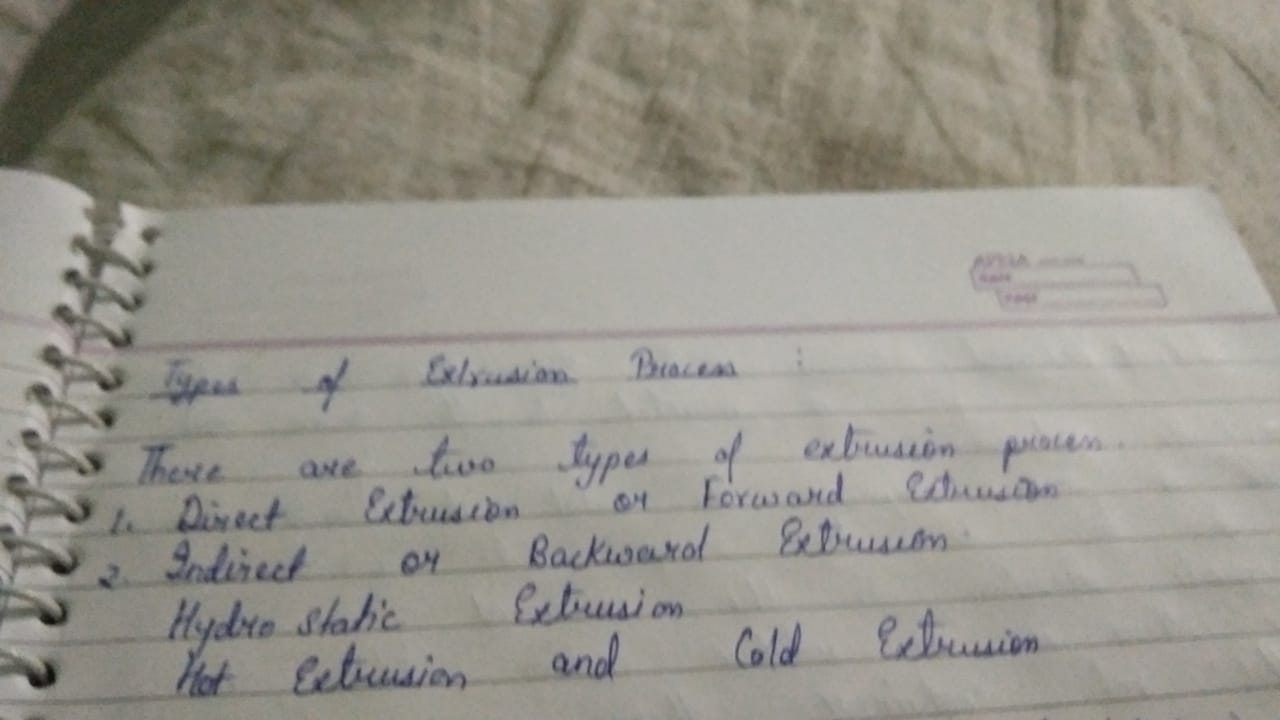 Types of Extrusion Process :
There are two types of extrusion process.
1. Direct Extrusion or Forward Extrusion
2. Indirect or Backward Extrusion.
Hydro static Extrusion
Hot Extrusion and Cold Extrusion